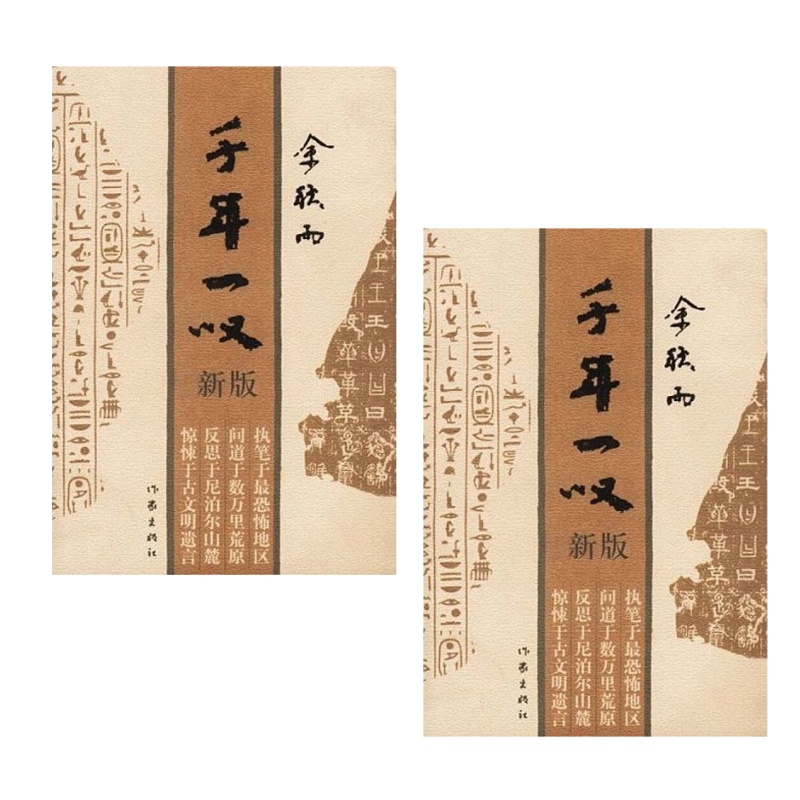 千年一叹
新版
余秋雨
执笔于最恐怖地区
问道于数万里荒原
反思于尼泊尔山麓
惊悚于古文明遗言
作家出版社
千年一叹
新版
余秋雨
执笔于最恐怖地区
问道于数万里荒原
反思于尼泊尔山麓
惊悚于古文明遗言
作家出版社